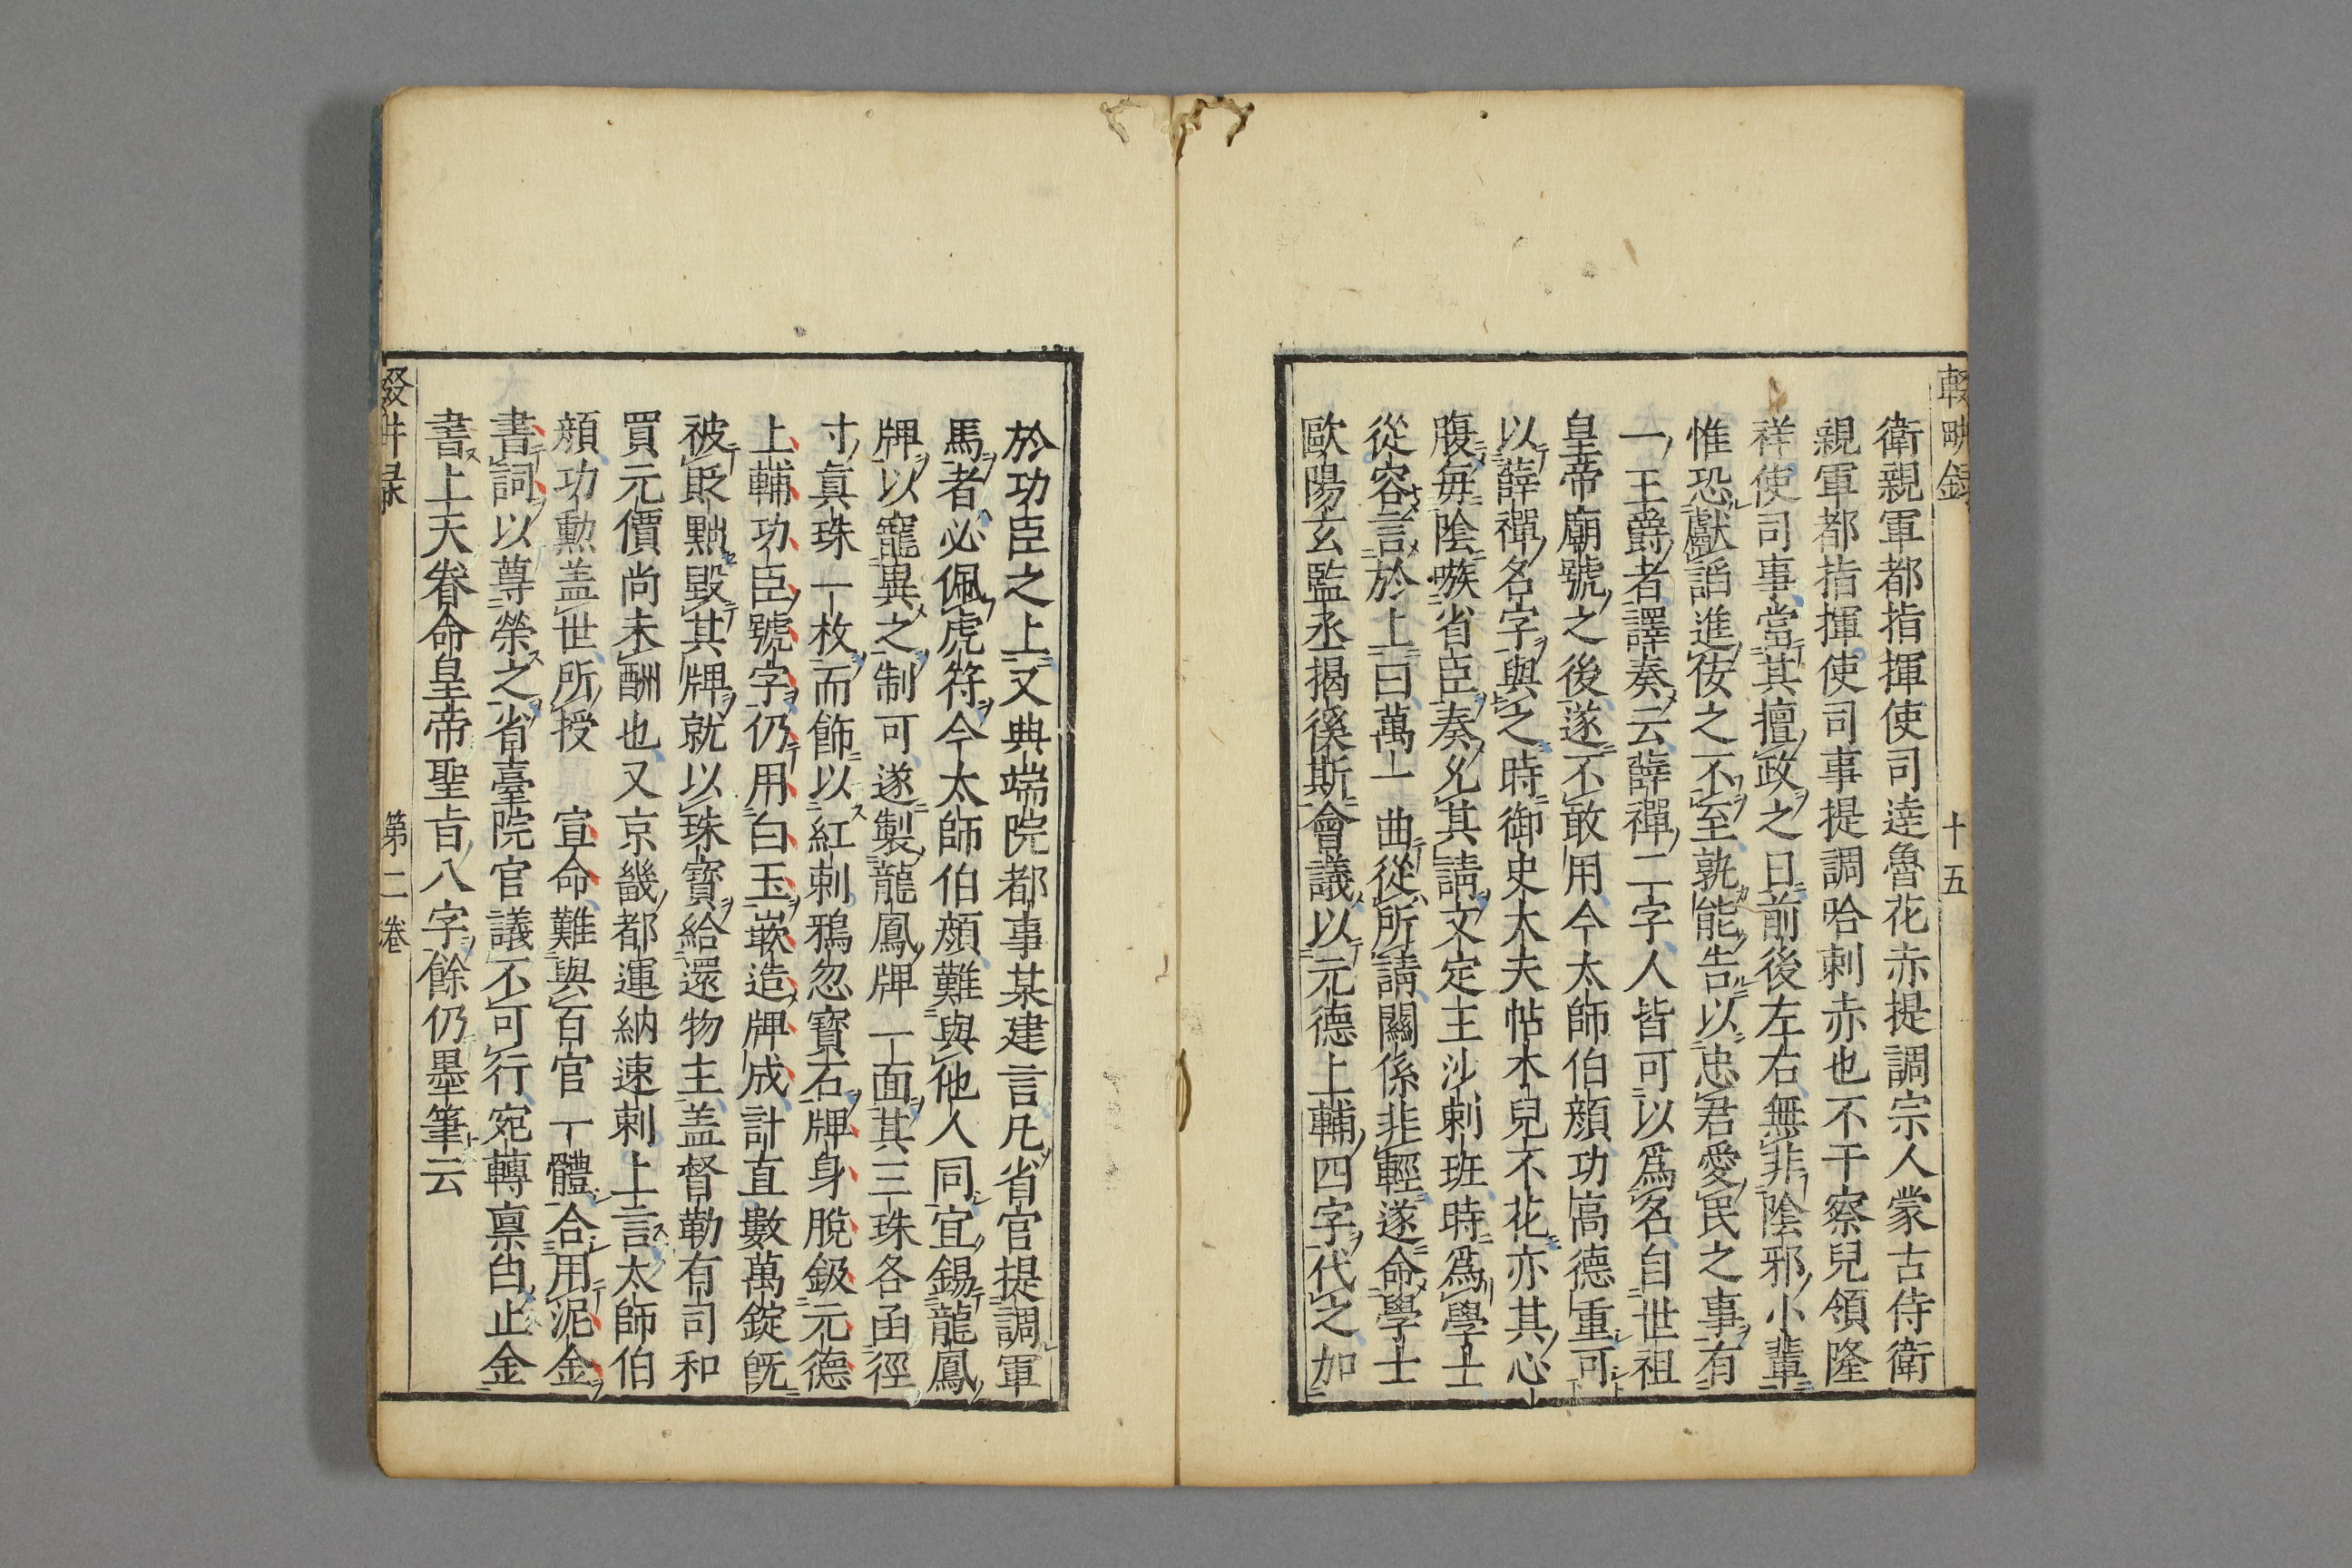 輟畊録
十五
衛親軍都指揮使司達魯花赤提調宗人蒙古侍衛
親軍都指揮使司事提調哈剌赤也不干察兒領隆
祥使司事當其擅政之日前後左右無非陰邪小輩
惟恐獻謟進佞之不至孰能告以忠君愛民之事有
一王爵者譯奏云薛禪二字人皆可以爲名自世祖
皇帝廟號之後遂不敢用今太師伯顔功高德重可
以薛禪名字與之時御史大夫帖木兒不花亦其心
腹每陰嗾省臣奏允其請文定王沙剌班時爲學士
從容言於上曰萬一曲從所請關係非輕遂命學士
歐陽玄監丞揭傒斯會議以元德上輔四字代之加
於功臣之上又典端院都事某建言凡省官提調軍
馬者必佩虎符今太師伯顔難與他人同宜錫龍鳳
牌以寵異之制可遂製龍鳳牌一面其三珠各函徑
寸眞珠一枚而飾以紅剌鴉忽寶石牌身脫鈒元德
上輔功臣號字仍用白玉嵌造牌成計直數萬錠旣
被貶黜毀其牌就以珠寶給還物主盖督勒有司和
買元價尚未酬也又京畿都運納速剌上言太師伯
顔功勲盖世所授　宣命難與百官一體合用泥金
書詞以尊榮之省臺院官議不可行宛轉稟白止金
書上天眷命皇帝聖旨八字餘仍墨筆云
第二卷